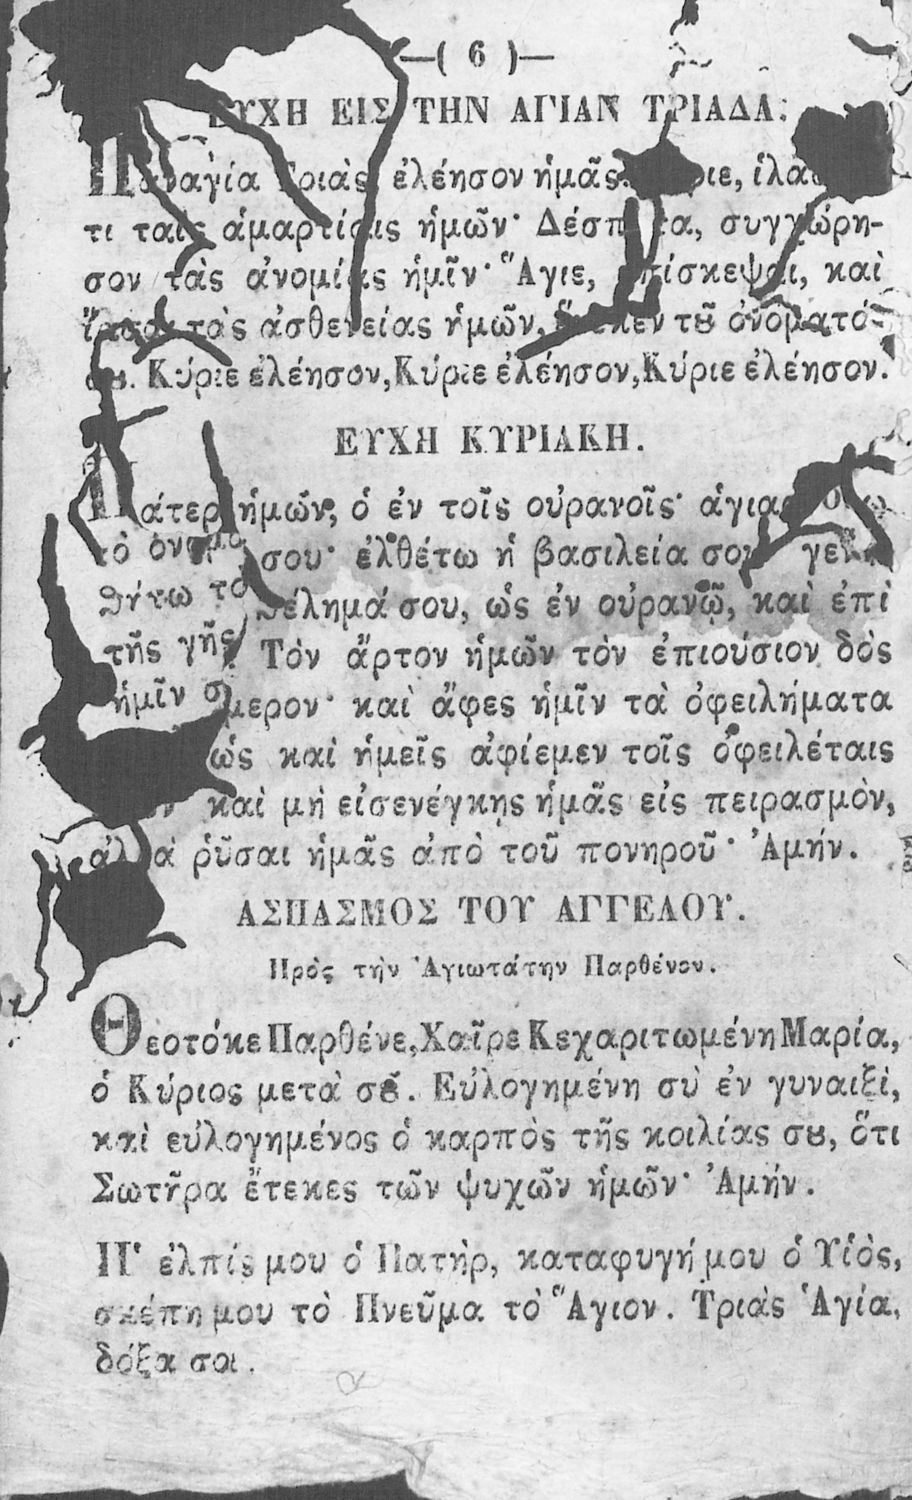 —( 6 )—
ΕΥΧΗ ΕΙΣ ΤΗΝ ΑΓΙΑΝ ΤΡΙΑΔΑ.
Παναγία Τριὰς ἐλέησον ἡμᾶς.
τι ταῖς ἁμαρτίαις ἡμῶν· Δέσποτα, συγχώρη-
σον τὰς ἀνομίας ἡμῖν· Ἅγιε, ἐπίσκεψαι, καὶ
ἴασαι τὰς ἀσθενείας ἡμῶν, ἕνεκεν τȣ ὀνοματό-
σȣ. Κύριε ἐλέησον, Κύριε ἐλέησον, Κύριε ἐλέησον.
ΕΥΧΗ ΚΥΡΙΑΚΗ.
Πάτερ ἡμῶν, ὁ ἐν τοῖς οὐρανοῖς· ἁγιασθήτω
τὸ ὄνομα σου· ἐλθέτω ἡ βασιλεία σου·
θήτω τὸ θέλημά σου, ὡς ἐν οὐρανῷ, καὶ ἐπὶ
τῆς γῆς. Τὸν ἄρτον ἡμῶν τὸν ἐπιούσιον δὸς
ἡμῖν σήμερον· καὶ ἄφες ἡμῖν τὰ ὀφειλήματα
ὡς καὶ ἡμεῖς ἀφίεμεν τοῖς ὀφειλέταις
καὶ μὴ εἰσενέγκῃς ἡμᾶς εἰς πειρασμὸν,
ἀλλὰ ῥῦσαι ἡμᾶς ἀπὸ τοῦ πονηροῦ· Ἀμήν.
ΑΣΠΑΣΜΟΣ ΤΟΥ ΑΓΓΕΛΟΥ.
Πρὸς τὴν Ἁγιωτάτην Παρθένον.
Θεοτόκε Παρθένε, Χαῖρε Κεχαριτωμένη Μαρία,
ὁ Κύριος μετὰ σȣ͂. Εὐλογημένη σὺ ἐν γυναιξὶ,
καὶ εὐλογημένος ὁ καρπὸς τῆς κοιλίας σȣ, ὅτι
Σωτῆρα ἔτεκες τῶν ψυχῶν ἡμῶν· Ἀμήν.
Ἡ ἐλπίς μου ὁ Πατὴρ, καταφυγή μου ὁ Υἱὸς,
σκέπη μου τὸ Πνεῦμα τὸ Ἅγιον. Τριὰς Ἁγία,
δόξα σοι.